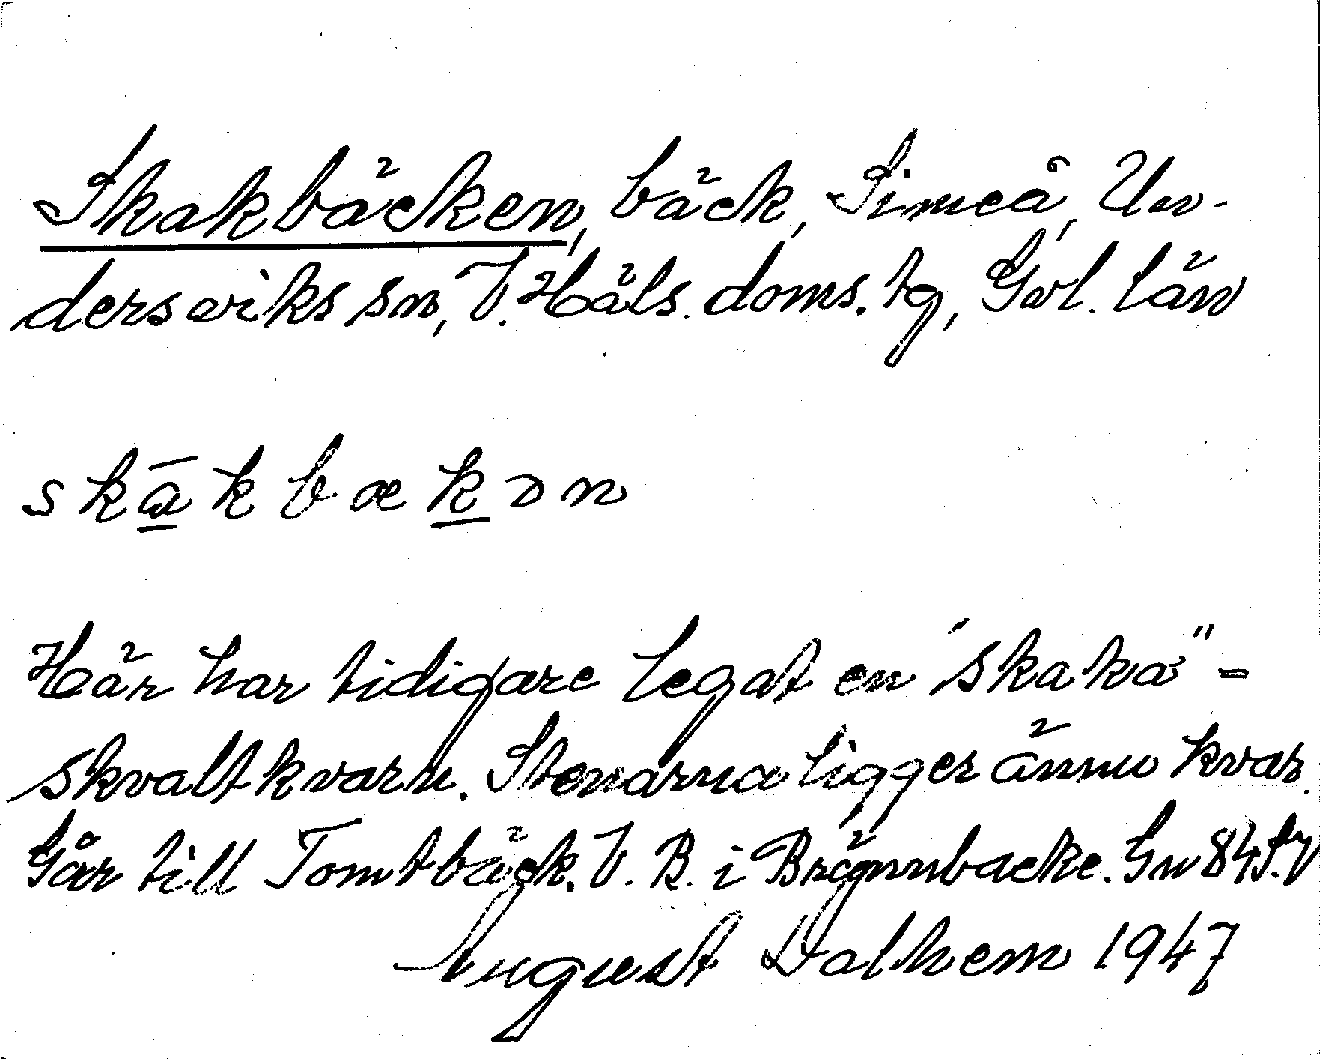 Skakbäcken, bäck, Simeå, Un-
dersviks sn, V. Häls. doms. tg, Gvl. län
skākbækən
Här har tidigare legat en "skaka" -
skvaltkvarn. Stenarna ligger ännu kvar.
Går till Tomtbäck. V. B. i Brännbacke. Sn 84
August Dalhem 1947